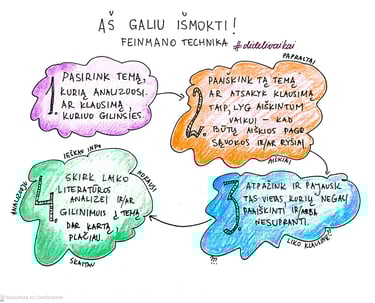 AŠ GALIU IŠMOKTI!
FEINMANO TECHNIKA
#didelivaikai
1.
PASIRINK TEMĄ,
KURIĄ ANALIZUOSI
AR KLAUSIMĄ
KURIUO GILINSIES.
PAPRASTAI
2.
PAAIŠKINK TĄ TEMĄ
AR ATSAKYK KLAUSIMĄ
TAIP, LYG AIŠKINTUM
VAIKUI - KAD
BŪTŲ AIŠKIOS PAGR.
SĄVOKOS IR/AR RYŠIAI.
AIŠKIAI
3.
ATPAŽINK IR PAJAUSK
TAS VIETAS, KURIŲ NEGALI
PAAIŠKINTI IR/ARBA
NESUPRANTI.
LIKO KLAUSIMŲ
???
IEŠKAU INFO
ANALIZUOJU
4.
SKIRK LAIKO
LITERATŪROS
ANALIZEI IR/AR
GILINIMUISI Į TEMĄ
DAR KARTĄ,
PLAČIAU.
SKAITAU
Nuskaityta su CamScanner